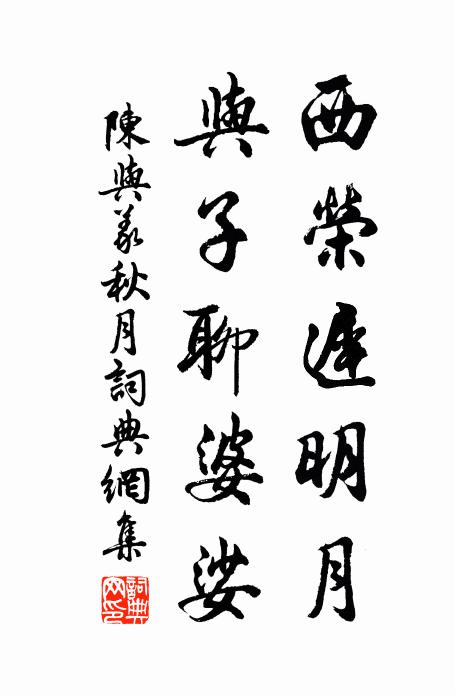 西榮遲明月
與子聊婆娑
陳與義秋月詞典網集
詞典
网印